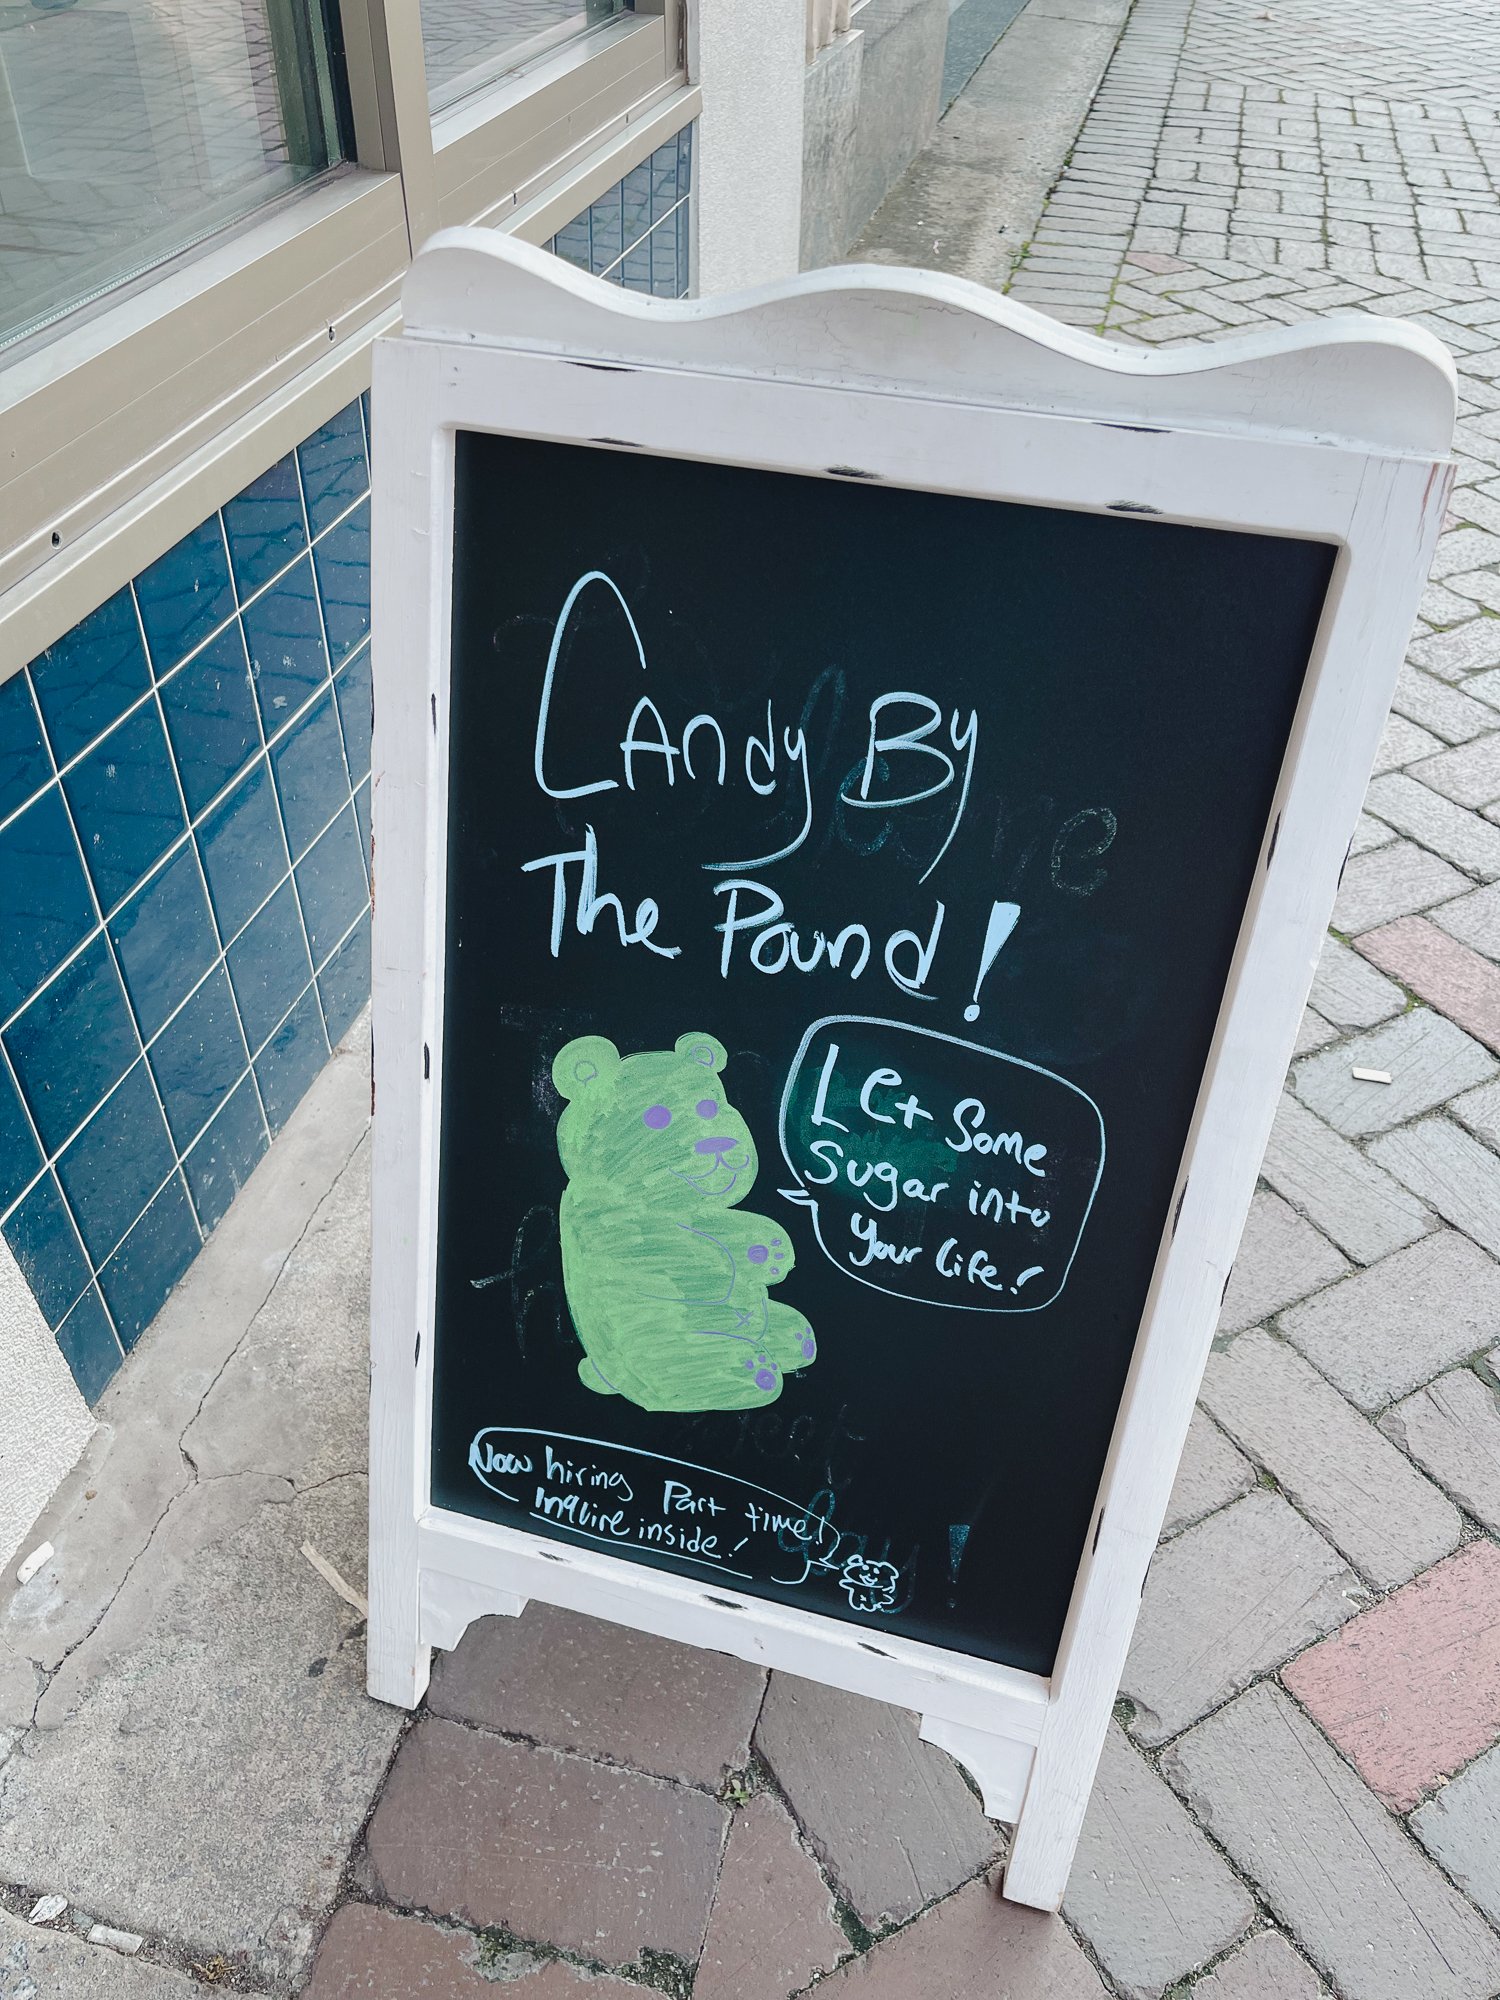 Candy By
The Pound!
Let Some
Sugar into
your life!
Now hiring Part time!
Inquire inside!